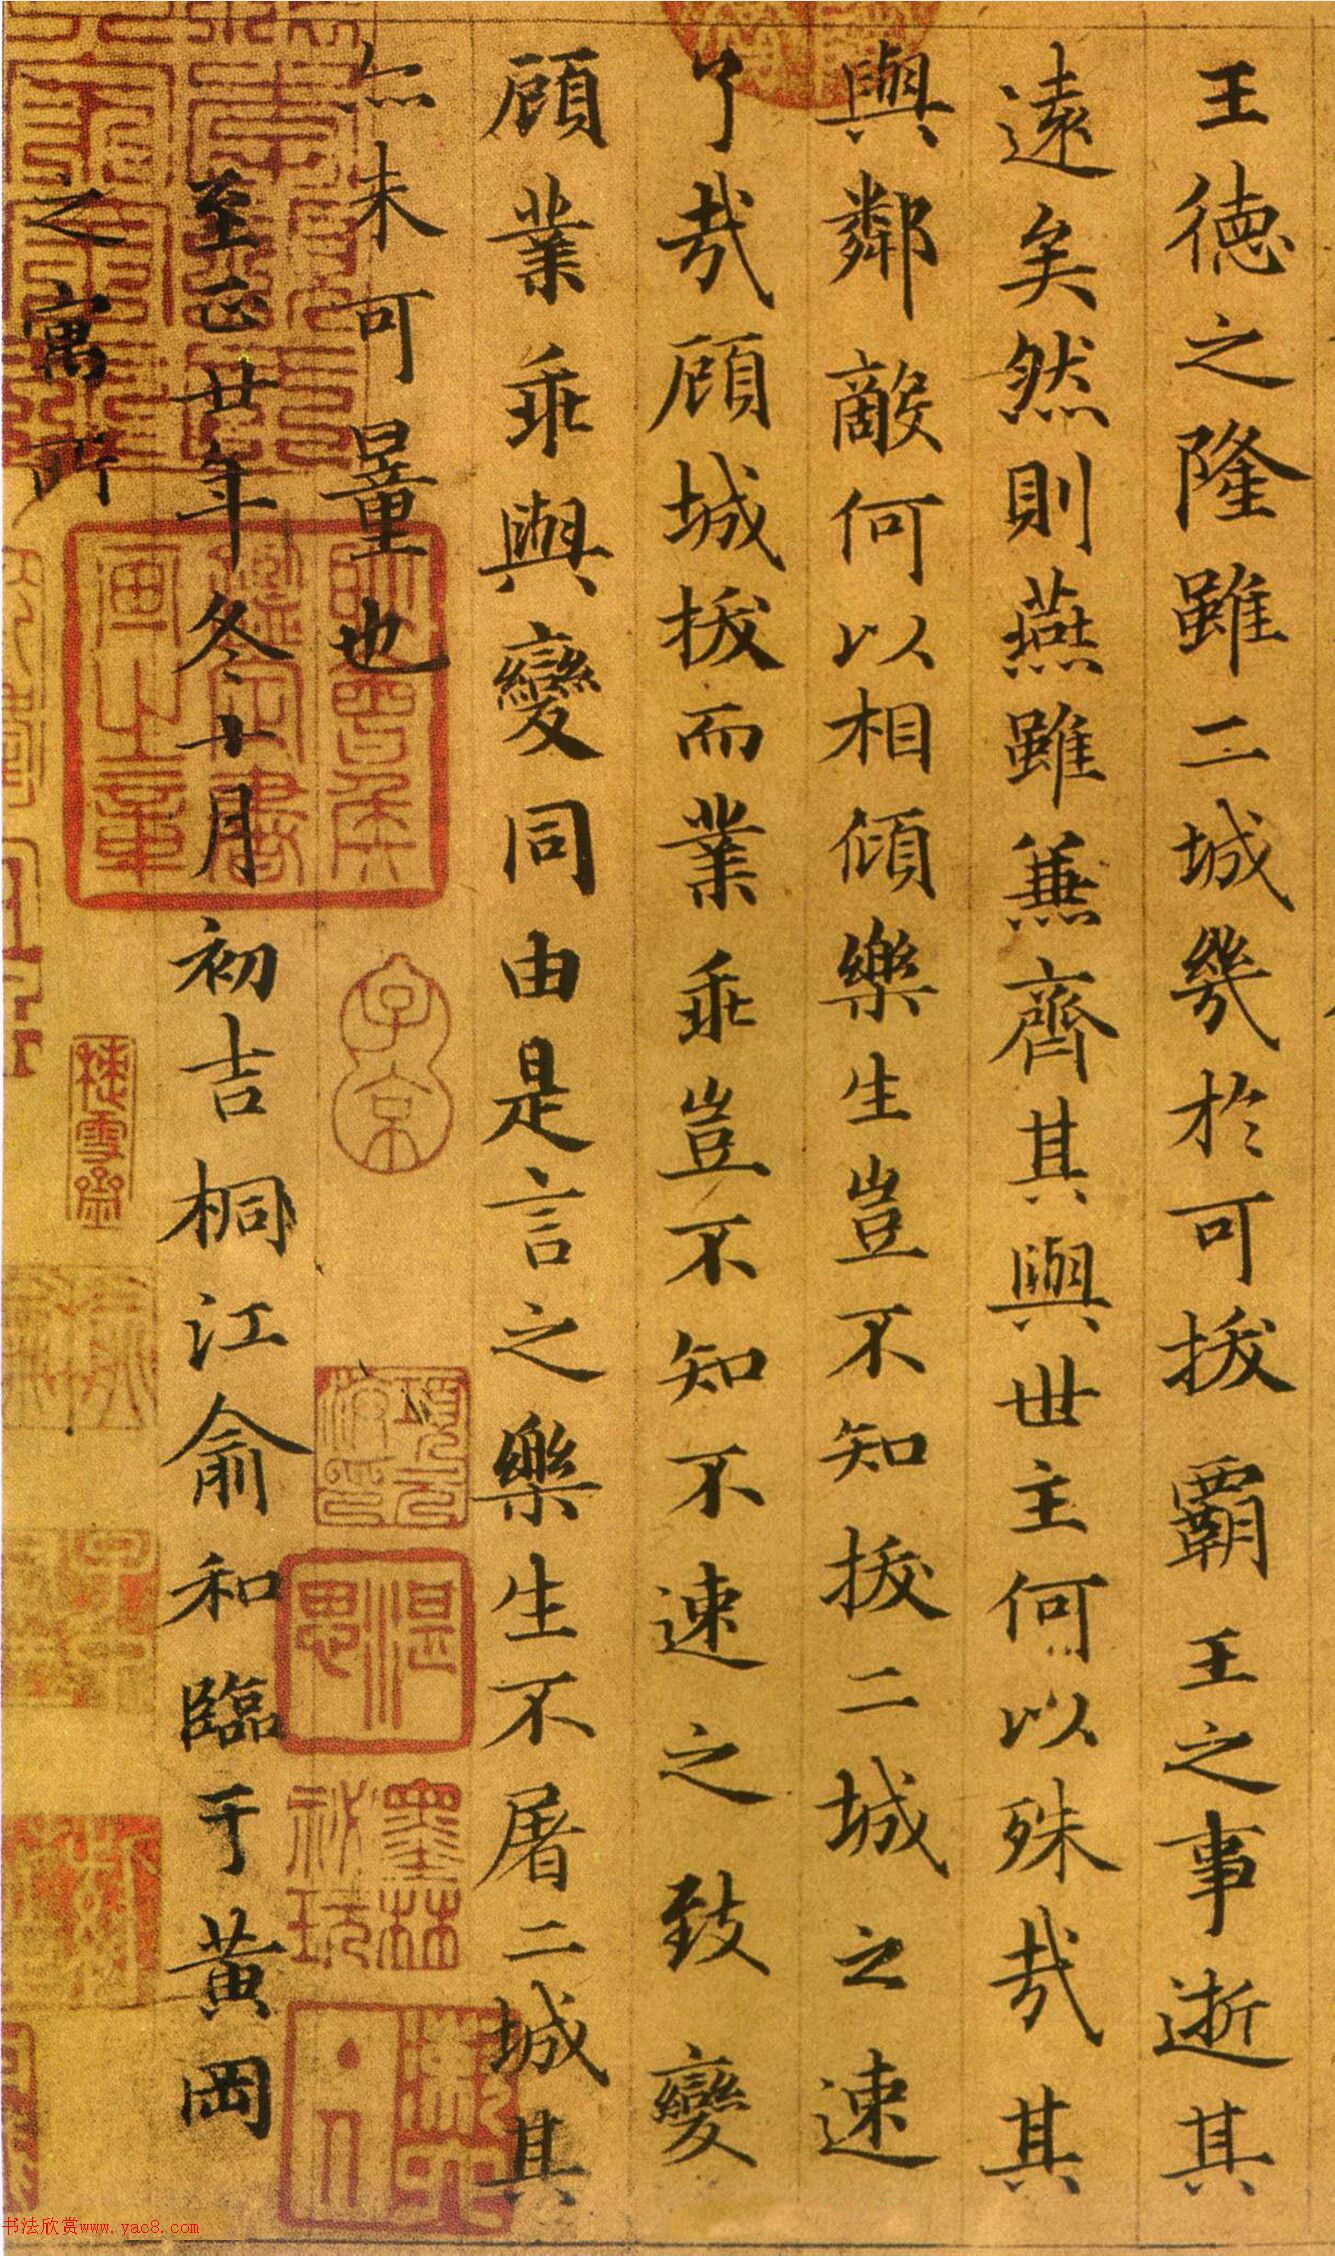 王德之隆雖二城幾於可拔霸王之事逝其
遠矣然則燕雖兼齊其與世主何以殊哉其
與鄰敵何以相傾樂生豈不知拔二城之速
了哉顧城拔而業乖豈不知不速之致變
顧業乖與變同由是言之樂生不屠二城其
亦未可量也
至正廿年冬十月初吉桐江俞和臨于黃岡
之寓所
子京
項元汴印
墨林祕玩
棲雪齋
书法欣赏www.yac8.com